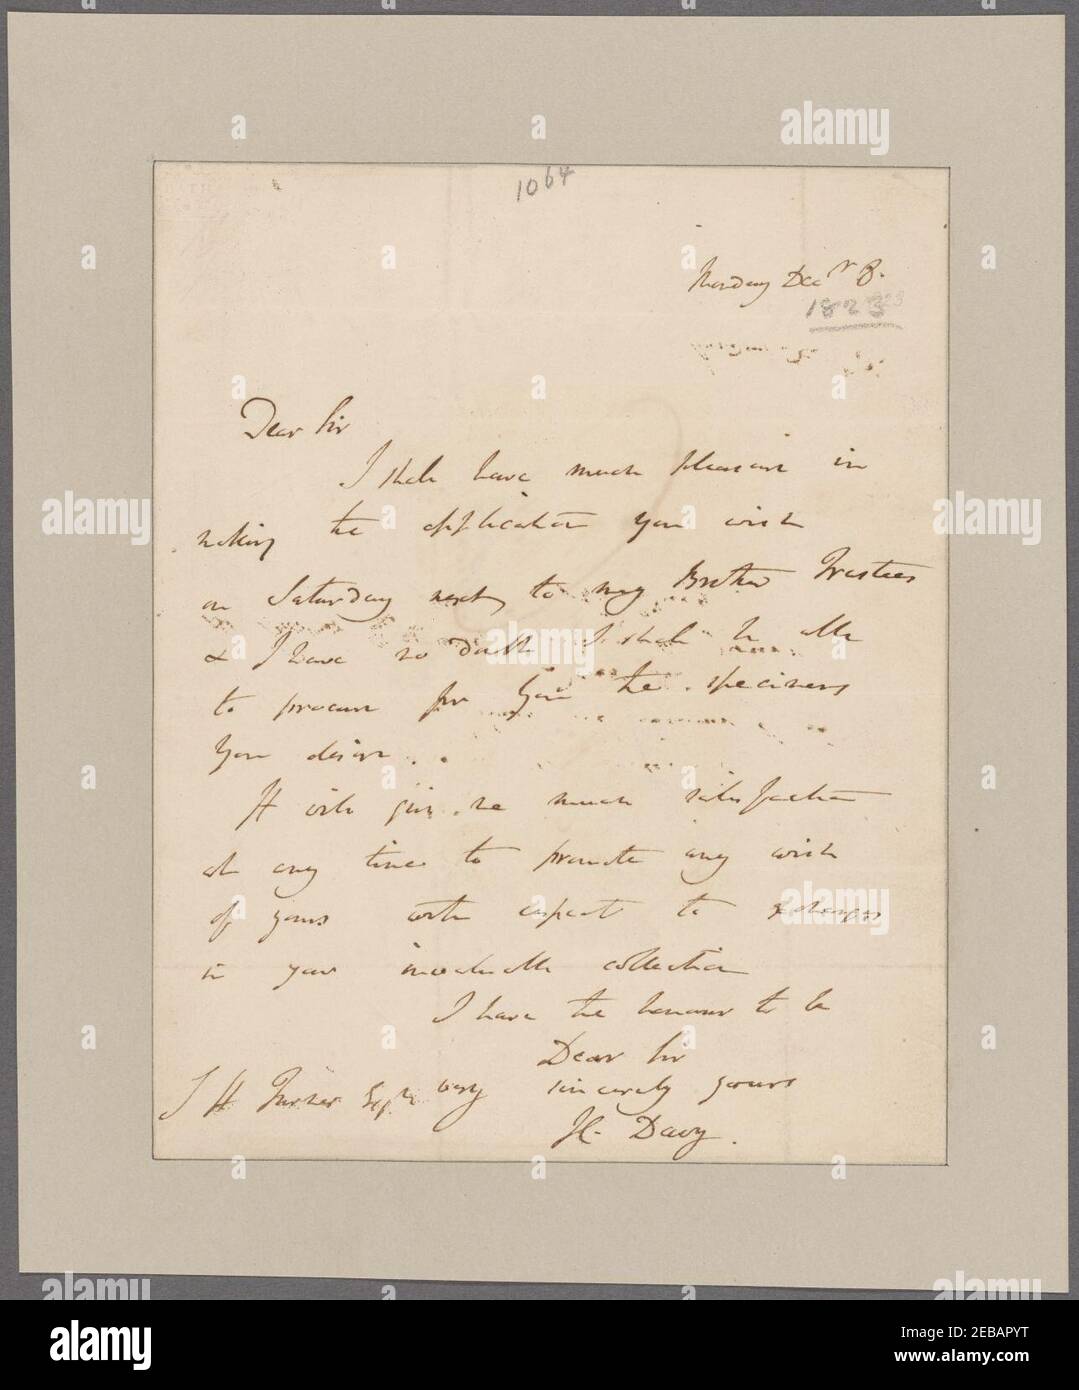 1064
Monday Decr 8.
1823
Dear Sir
I shall have much pleasure in
making the application you wish
on Saturday next, to my Brother Trustees
& I have no doubt I shall be able
to procure for you the specimens
you desire.
It will give me much satisfaction
at any time to promote any wish
of yours with respect to exchanges
in your invaluable collection
I have the honour to be
Dear Sir
very sincerely yours
H. Davy.
Turner Esqre
alamy
Image ID: 2EBAPYT
www.alamy.com